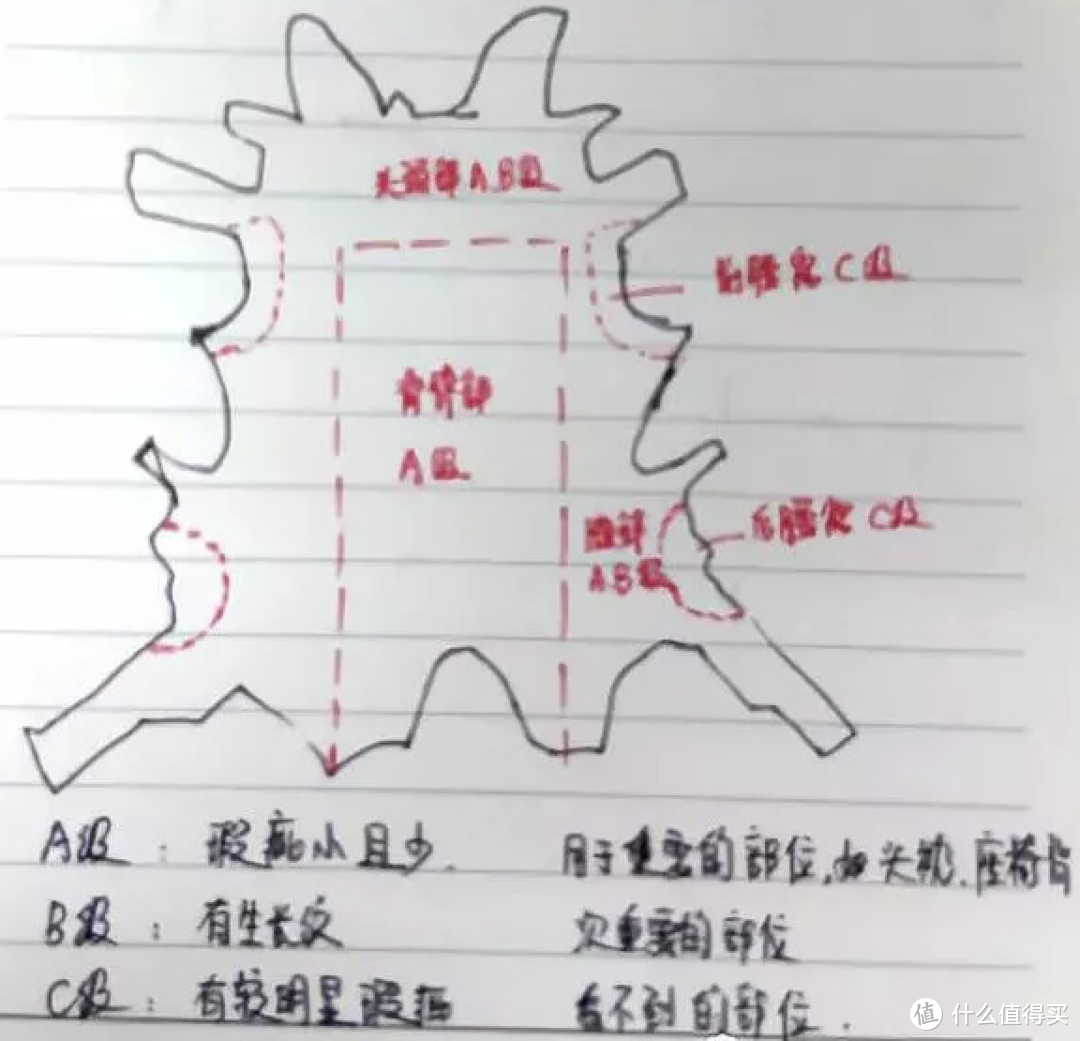 头颈部A.B级
前腋窝C级
背脊部
A级
腹部
A.B级
后腋窝C级
A级：瑕疵小且少. 用于重要的部位,如头枕.座椅背
B级：有生长纹 次重要的部位
C级：有较明显瑕疵 看不到的部位.
值 什么值得买